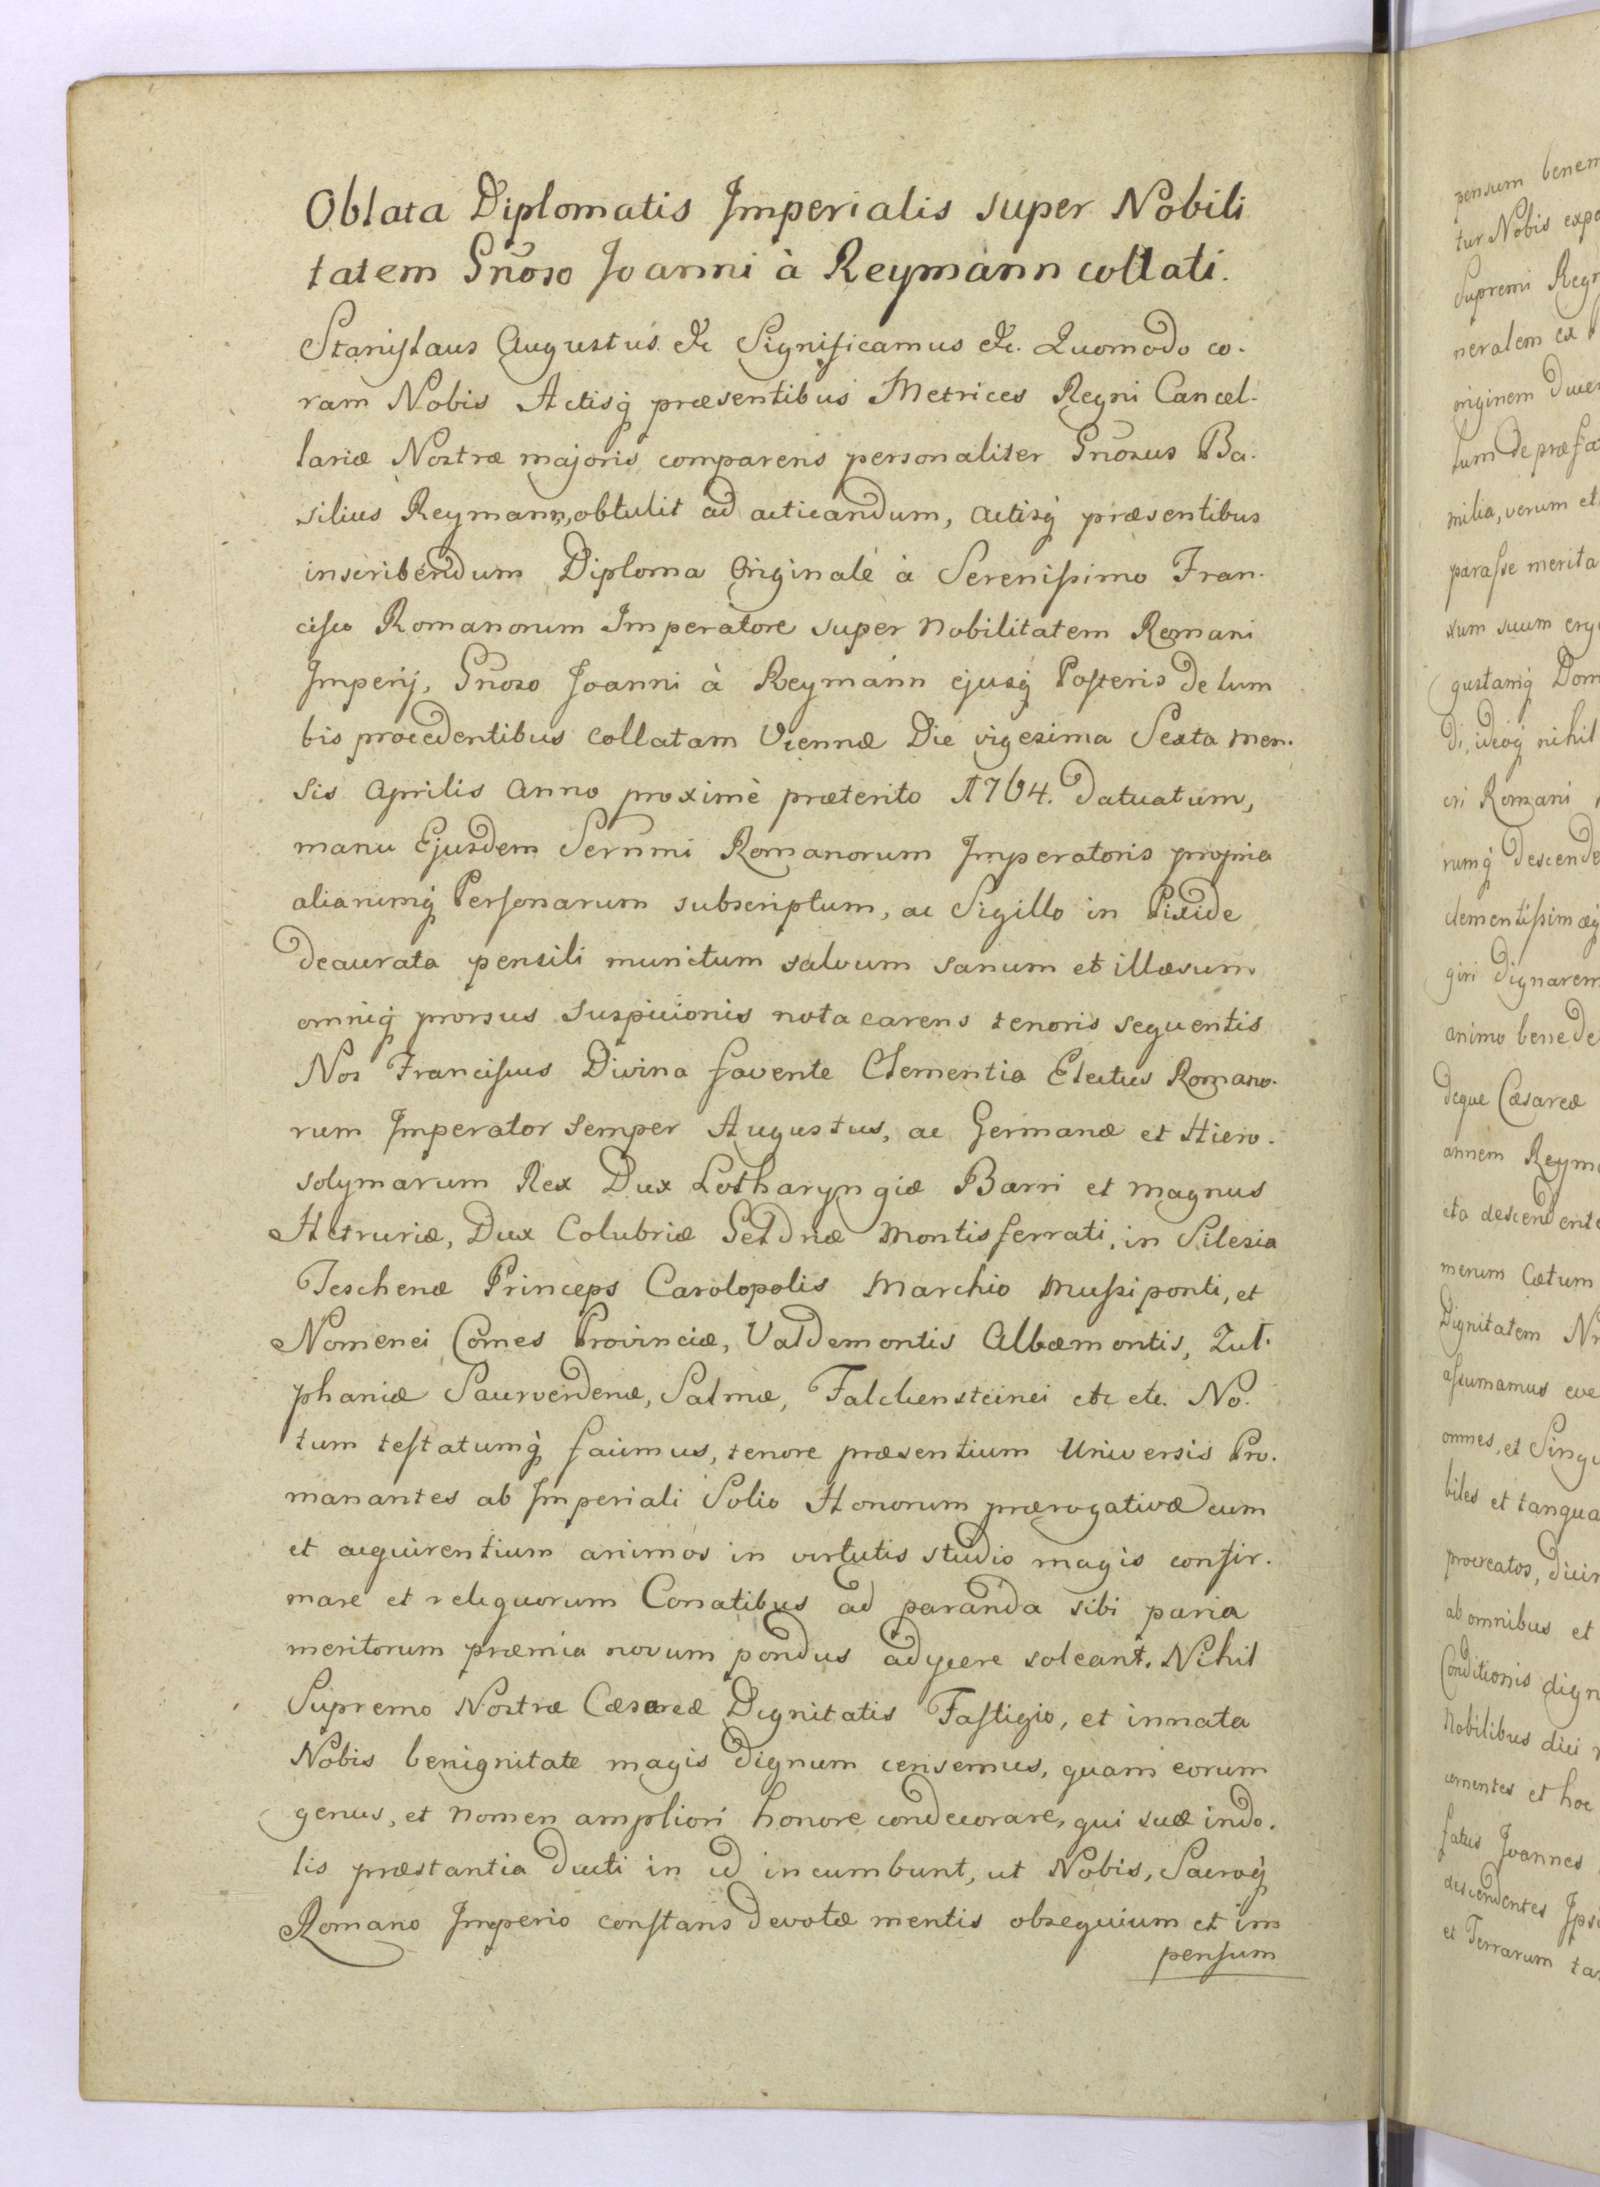 Oblata Diplomatis Imperialis super Nobili
tatem Gñoso Joanni à Reymann collati.
Stanislaus Augustus &c Significamus &c. Quomodo co-
ram Nobis Actisq́ præsentibus Metrices Regni Cancel-
lariæ Nostræ majoris comparens personaliter Gñosus Ba-
silius Reymann, obtulit ad acticandum, actisq́ præsentibus
inscribendum Diploma Originale à Serenissimo Fran-
cisco Romanorum Imperatore super Nobilitatem Romani
Imperij, Gñoso Joanni à Reymann ejusq́ Posteris de lum
bis procedentibus collatam Viennæ Die vigesima Sexta Men-
sis Aprilis Anno proximè præterito 1764. datuatum,
manu Ejusdem Sernmi Romanorum Imperatoris propria
aliarumq́ Personarum subscriptum, ac Sigillo in Pixide
deaurata pensili munitum salvum sanum et illæsum
omniq́ prorsus suspicionis nota carens tenoris sequentis
Nos Franciscus Divina favente Clementia Electus Romano-
rum Imperator Semper Augustus, ac Germanæ et Hiero-
solymarum Rex Dux Lotharyngiæ Barri et Magnus
Hetruriæ, Dux Colubriæ Geldriæ Montisferrati, in Silesia
Teschenæ Princeps Carolopolis Marchio Mussiponti, et
Nomenei Comes Provinciæ, Valdemontis Albæmontis, Zut-
phaniæ Saurverdenæ, Salmæ, Falckensteinei etc etc. No-
tum testatumq́ facimus, tenore præsentium Universis Pro-
manantes ab Imperiali Solio Honorum prærogativæ cum
et acquirentium animos in virtutis studio magis confir-
mare et reliquorum Conatibus ad paranda sibi paria
meritorum præmia novum pondus adycere soleant. Nihil
Supremo Nostræ Cæsareæ Dignitatis Fastigio, et innata
Nobis benignitate magis dignum censemus, quam eorum
genus, et Nomen ampliori honore condecorare, qui suæ indo-
lis præstantia ducti in id incumbunt, ut Nobis, Sacroq́
Romano Imperio constans devotæ mentis obsequium et im
pensum
pensum
tur Nobis
Supremi
neralem ex
originem
tum de
milia, verum et
parasse merita
sum suum
gustamq́
di, ideoq́ nihil
eri Romani
rumq́
clementissimæq́
giri
animo
deque Cæsareæ
annem
eta
merum Cætum
Dignitatem
assumamus
omnes, et
biles et
procreatos,
ab omnibus et
Conditionis
Nobilibus dici
cernentes et hoc
fatus Joannes
descendentes
et Terrarum